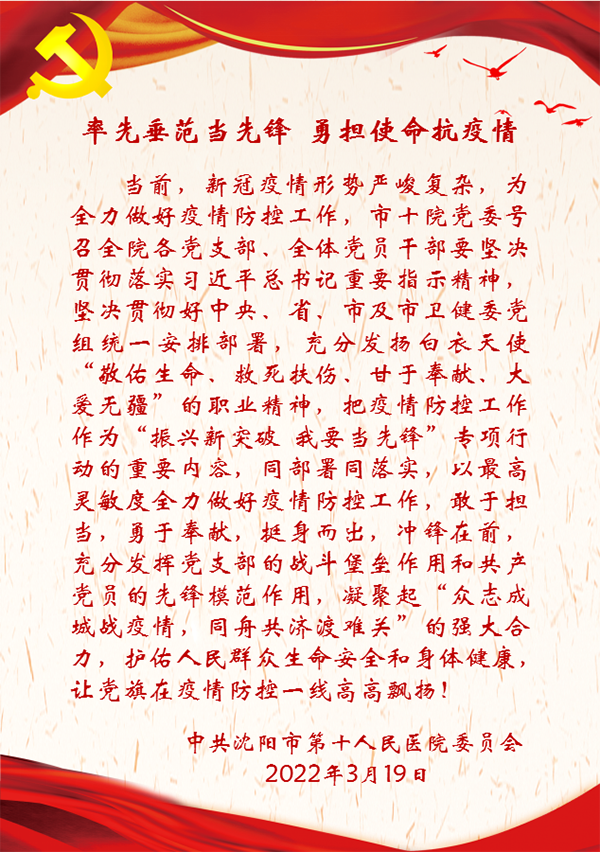 率先垂范当先锋 勇担使命抗疫情
当前，新冠疫情形势严峻复杂，为
全力做好疫情防控工作，市十院党委号
召全院各党支部、全体党员干部要坚决
贯彻落实习近平总书记重要指示精神，
坚决贯彻好中央、省、市及市卫健委党
组统一安排部署，充分发扬白衣天使
“敬佑生命、救死扶伤、甘于奉献、大
爱无疆”的职业精神，把疫情防控工作
作为“振兴新突破 我要当先锋”专项行
动的重要内容，同部署同落实，以最高
灵敏度全力做好疫情防控工作，敢于担
当，勇于奉献，挺身而出，冲锋在前，
充分发挥党支部的战斗堡垒作用和共产
党员的先锋模范作用，凝聚起“众志成
城战疫情，同舟共济渡难关”的强大合
力，护佑人民群众生命安全和身体健康，
让党旗在疫情防控一线高高飘扬！
中共沈阳市第十人民医院委员会
2022年3月19日